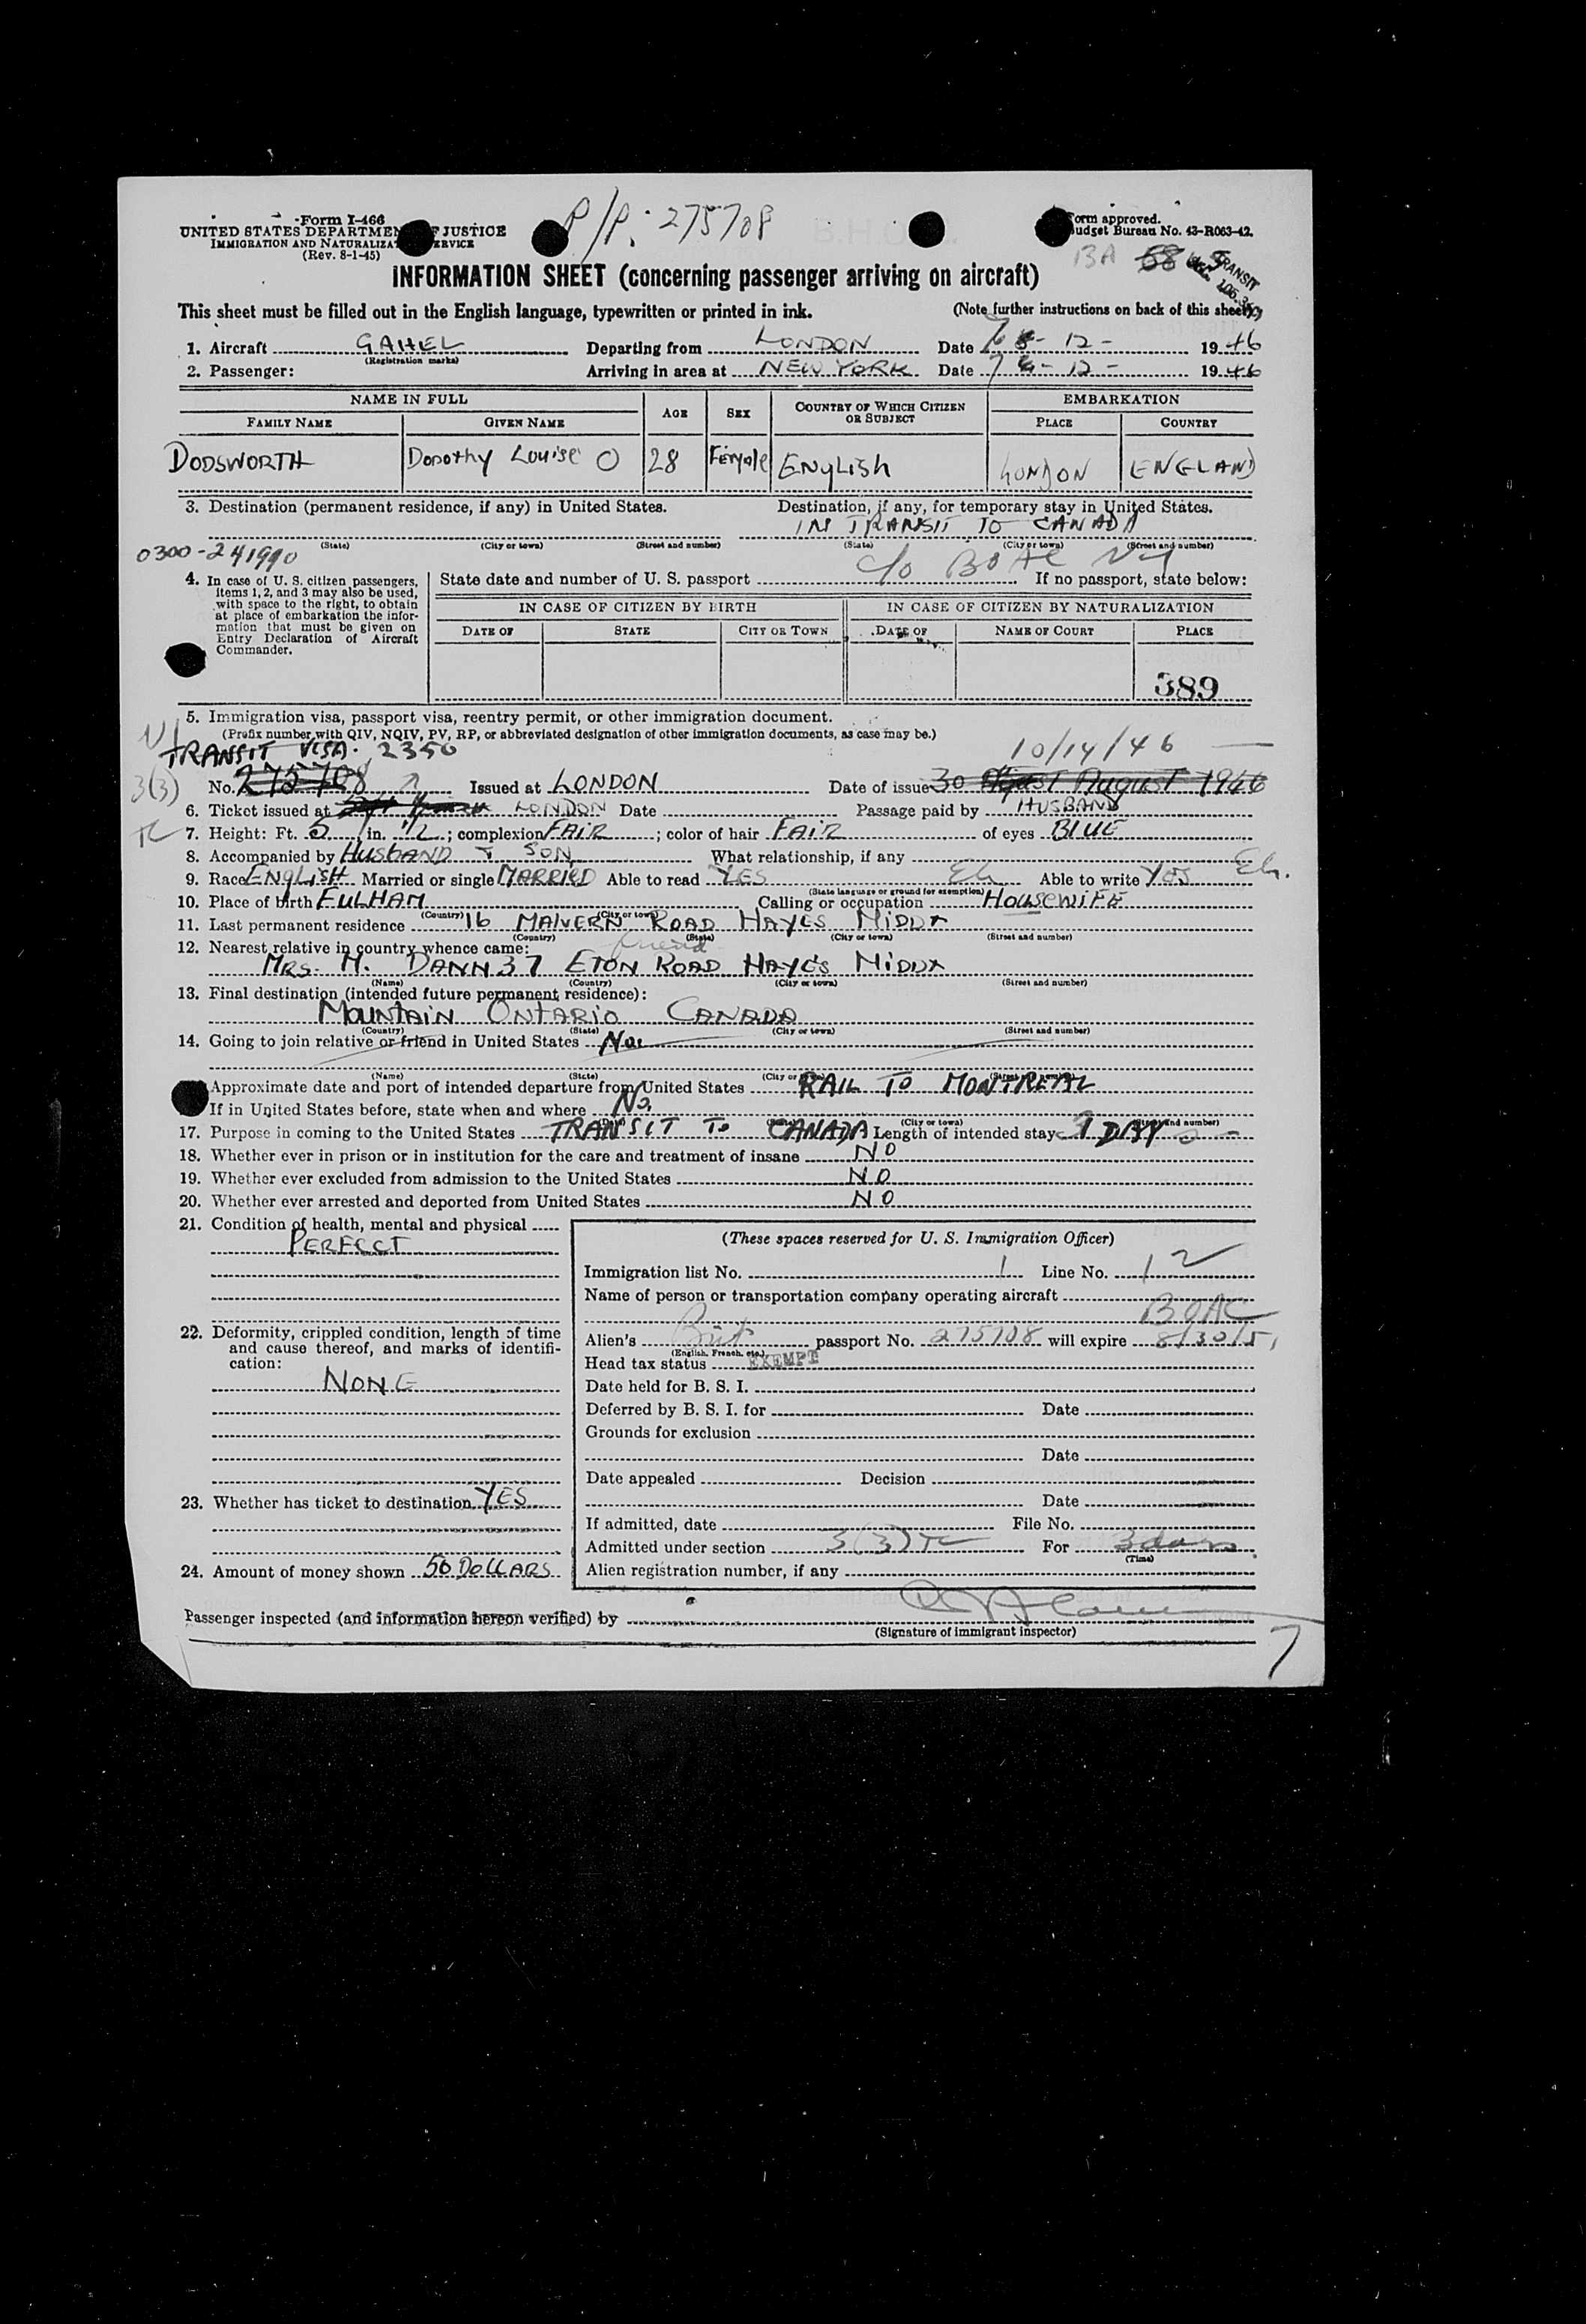 Form I-466
UNITED STATES DEPARTMEN F JUSTICE
IMMIGRATION AND NATURALIZAT ERVICE
(Rev. 8-1-45)
P/P: 275708
orm approved.
udget Bureau No. 43-R063-42.
BA 58 TRANSIT
INFORMATION SHEET (concerning passenger arriving on aircraft)
This sheet must be filled out in the English language, typewritten or printed in ink. (Note further instructions on back of this sheet.)
1. Aircraft GAHEL Departing from LONDON Date 7 - 12 - 1946
(Registration marks)
2. Passenger: Arriving in area at NEW YORK Date 7 - 12 - 1946
NAME IN FULL AGE SEX COUNTRY OF WHICH CITIZEN OR SUBJECT EMBARKATION
FAMILY NAME GIVEN NAME PLACE COUNTRY
DODSWORTH Dorothy Louise O 28 Female ENGLISH LONDON ENGLAND
3. Destination (permanent residence, if any) in United States. Destination, if any, for temporary stay in United States.
IN TRANSIT TO CANADA
(State) (City or town) (Street and number) (State) (City or town) (Street and number)
0300-241990
c/o BOAC NY
4. In case of U. S. citizen passengers, items 1, 2, and 3 may also be used, with space to the right, to obtain at place of embarkation the information that must be given on Entry Declaration of Aircraft Commander.
State date and number of U. S. passport If no passport, state below:
IN CASE OF CITIZEN BY BIRTH IN CASE OF CITIZEN BY NATURALIZATION
DATE OF STATE CITY OR TOWN DATE OF NAME OF COURT PLACE
389
5. Immigration visa, passport visa, reentry permit, or other immigration document.
(Prefix number with QIV, NQIV, PV, RP, or abbreviated designation of other immigration documents, as case may be.)
TRANSIT VISA. 2350 10/14/46
3(3) No. 275708 Issued at LONDON Date of issue 30 August 1946
6. Ticket issued at LONDON Date Passage paid by HUSBAND
TC 7. Height: Ft. 5 in. 1/2; complexion FAIR; color of hair FAIR of eyes BLUE
8. Accompanied by HUSBAND & SON What relationship, if any
9. Race ENGLISH Married or single MARRIED Able to read YES Eh Able to write Yes Eh.
(State language or ground for exemption)
10. Place of birth FULHAM Calling or occupation HOUSEWIFE
(Country) (City or town)
11. Last permanent residence 16 MALVERN ROAD HAYES MIDDX
(Country) (State) (City or town) (Street and number)
12. Nearest relative in country whence came: friend
MRS. M. DANN 37 ETON ROAD HAYES MIDDX
(Name) (Country) (City or town) (Street and number)
13. Final destination (intended future permanent residence):
MOUNTAIN ONTARIO CANADA
(Country) (State) (City or town) (Street and number)
14. Going to join relative or friend in United States No.
(Name) (State) (City or town) (Street and number)
Approximate date and port of intended departure from United States RAIL TO MONTREAL
If in United States before, state when and where No.
(City or town) (Street and number)
17. Purpose in coming to the United States TRANSIT TO CANADA Length of intended stay 1 DAY
18. Whether ever in prison or in institution for the care and treatment of insane NO
19. Whether ever excluded from admission to the United States NO
20. Whether ever arrested and deported from United States NO
21. Condition of health, mental and physical
PERFECT
22. Deformity, crippled condition, length of time and cause thereof, and marks of identification:
NONE
23. Whether has ticket to destination YES
24. Amount of money shown 50 DOLLARS
(These spaces reserved for U. S. Immigration Officer)
Immigration list No. 1 Line No. 12
Name of person or transportation company operating aircraft
BOAC
Alien's Brit passport No. 275708 will expire 8/30/51
(English, French, etc.)
Head tax status EXEMPT
Date held for B. S. I.
Deferred by B. S. I. for Date
Grounds for exclusion
Date
Date appealed Decision
Date
If admitted, date File No.
Admitted under section 3(3) TC For 3 days
(Time)
Alien registration number, if any
Passenger inspected (and information hereon verified) by
(Signature of immigrant inspector)
7